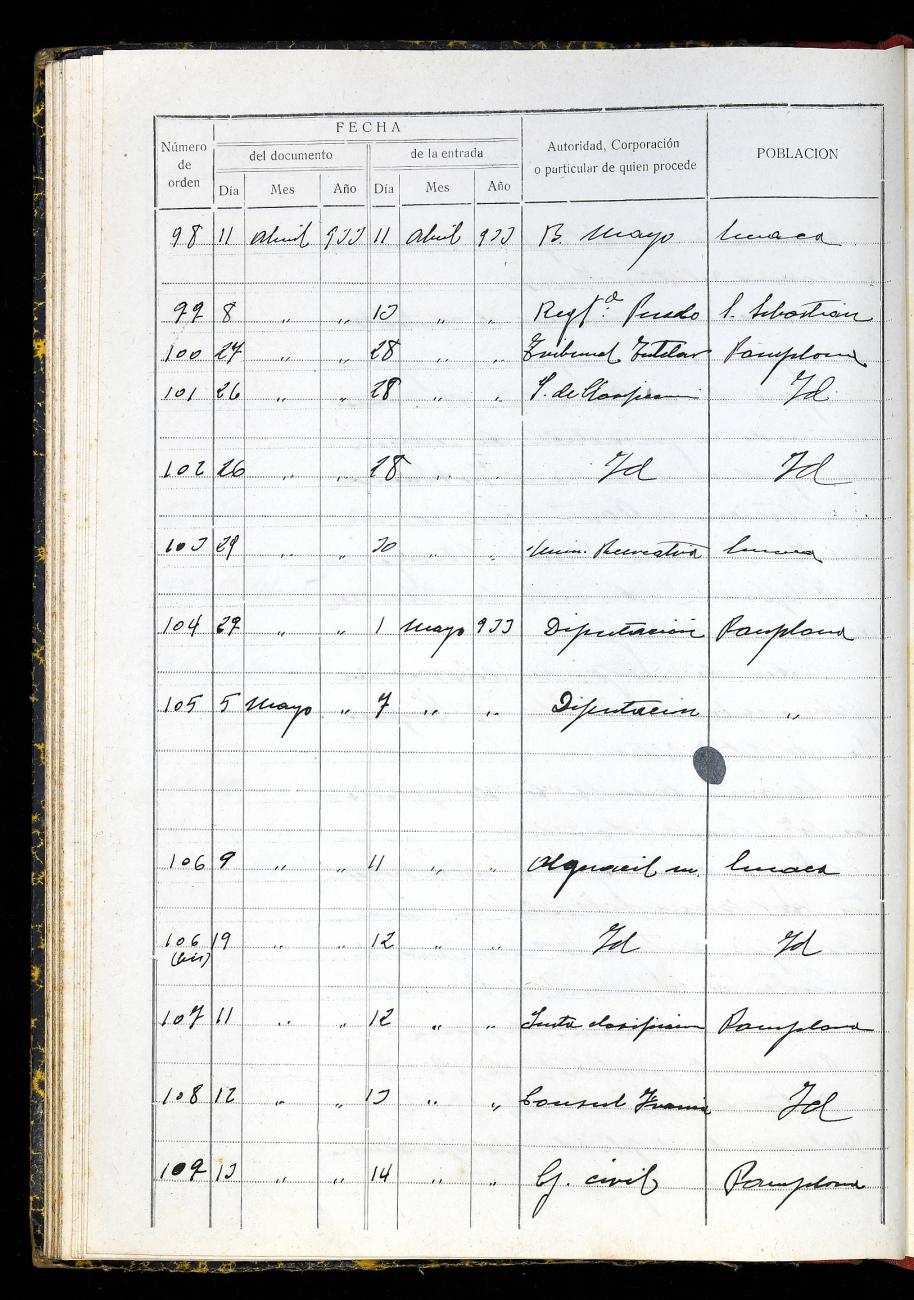 FECHA
Número de orden
del documento
de la entrada
Autoridad, Corporación
o particular de quien procede
POBLACION
Día Mes Año Día Mes Año
98 11 Abril 933 11 Abril 933 B. Mayo
99 8 " " 13 " " S. Sebastian
100 27 " " 28 " " Tribunal Tutelar Pamplona
101 26 " " 28 " " Id
102 26 " " 28 " " Id Id
103 29 " " 30 " " Recreativa
104 29 " " 1 Mayo 933 Diputación Pamplona
105 5 Mayo " 7 " " Diputacion "
106 9 " " 11 " " Alguacil m.
106 19 " " 12 " " Id Id
(bis)
107 11 " " 12 " " Junta clasificacion Pamplona
108 12 " " 13 " " Consul Id
109 13 " " 14 " " G. civil Pamplona